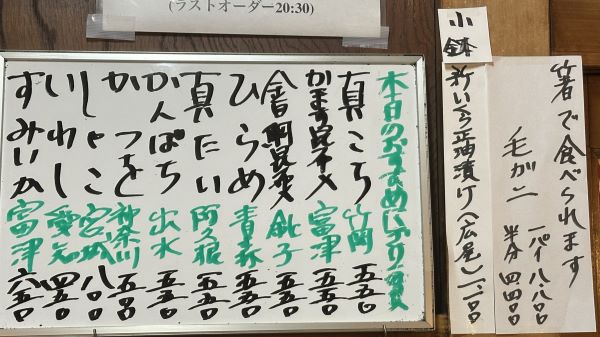 (ラストオーダー20:30)
本日のおすすめにぎり
真こち 竹岡 五五〇
かます昆布〆 富津 五五〇
金目鯛昆布〆 銚子 五五〇
ひらめ 青森 五五〇
真だい 阿久根 五五〇
かんぱち 出水 五五〇
かつを 神奈川 五五〇
しゃこ 宮城 八〇〇
いわし 愛知 四五〇
すみいか 富津 六五〇
小鉢
新いくら正油漬け(広尾)
箸で食べられます
毛がニ
一パイ 八、八〇〇
半分 四、四〇〇